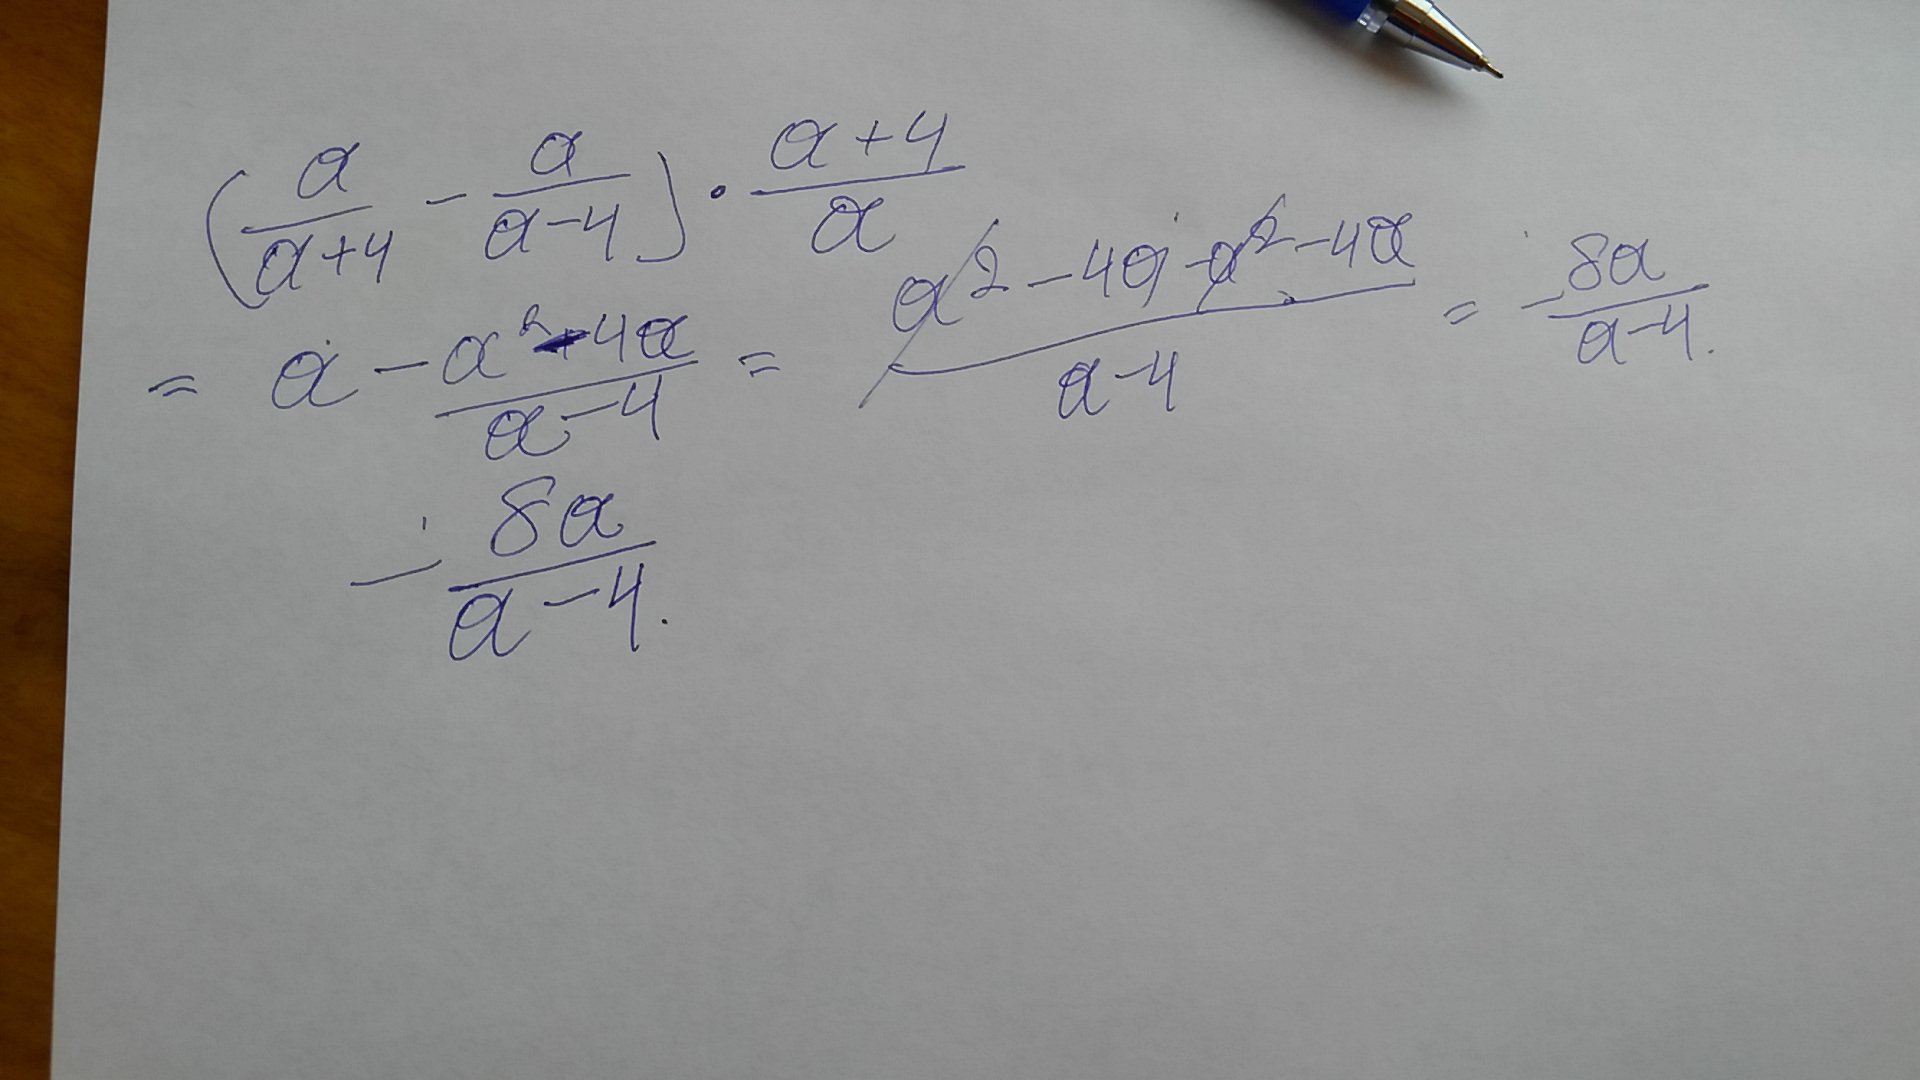 (a/(a+4) - a/(a-4)) · (a+4)/a
= a - (a² + 4a)/(a-4) = (a² - 4a - a² - 4a)/(a-4) = - 8a/(a-4).
- 8a/(a-4).